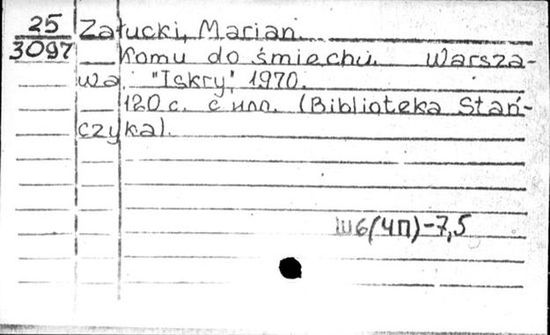 25 Załucki, Marian.
3097 Komu do śmiechu. Warsza-
wa, "Iskry", 1970.
120 с. с илл. (Biblioteka Stań-
czyka).
Ш6(4П)-7,5